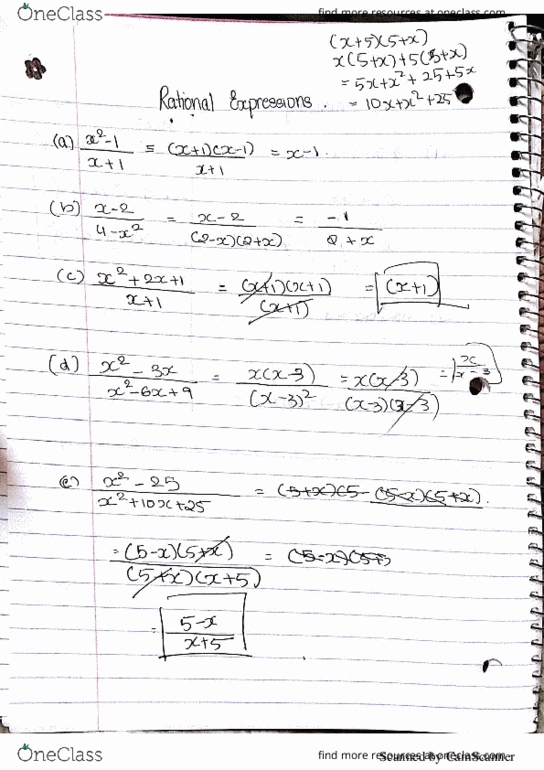 OneClass
find more resources at oneclass.com
(x+5)(5+x)
x(5+x)+5(5+x)
= 5x+x²+25+5x
= 10x+x²+25
Rational Expressions.
(a) x²-1 / x+1 = (x+1)(x-1) / x+1 = x-1.
(b) x-2 / 4-x² = x-2 / (2-x)(2+x) = -1 / 2+x
(c) x²+2x+1 / x+1 = (x+1)(x+1) / (x+1) = (x+1)
(d) x²-3x / x²-6x+9 = x(x-3) / (x-3)² = x(x-3) / (x-3)(x-3) = x / x-3
e) x²-25 / x²+10x+25 = (5+x)(5- (5-x)(5+x).
= (5-x)(5+x) / (5+x)(x+5) = (5-x)(5+
= 5-x / x+5
OneClass
find more resources at oneclass.com
Scanned by CamScanner